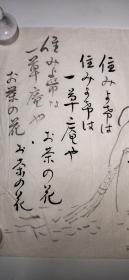 住みよゐは
住みよゐは
一草庵や
お茶の花
お茶の花
住みよゐは
一草庵や
お茶の花